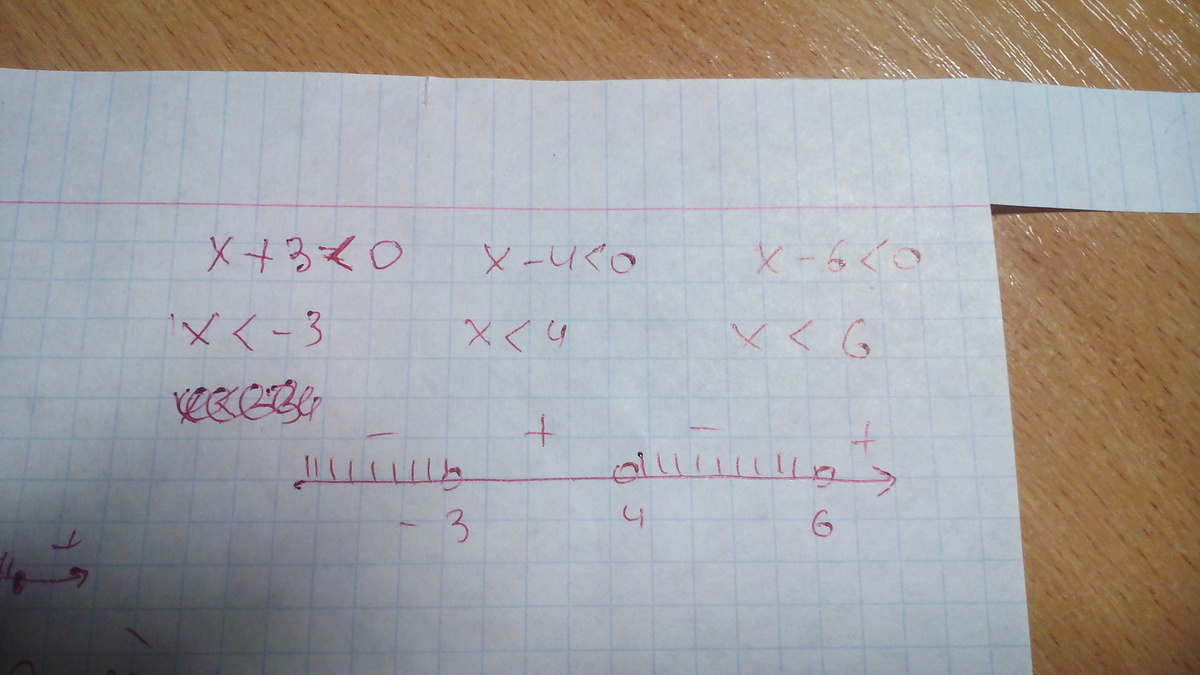 x + 3 < 0 x - 4 < 0 x - 6 < 0
x < - 3 x < 4 x < 6
- + - +
- 3 4 6
+